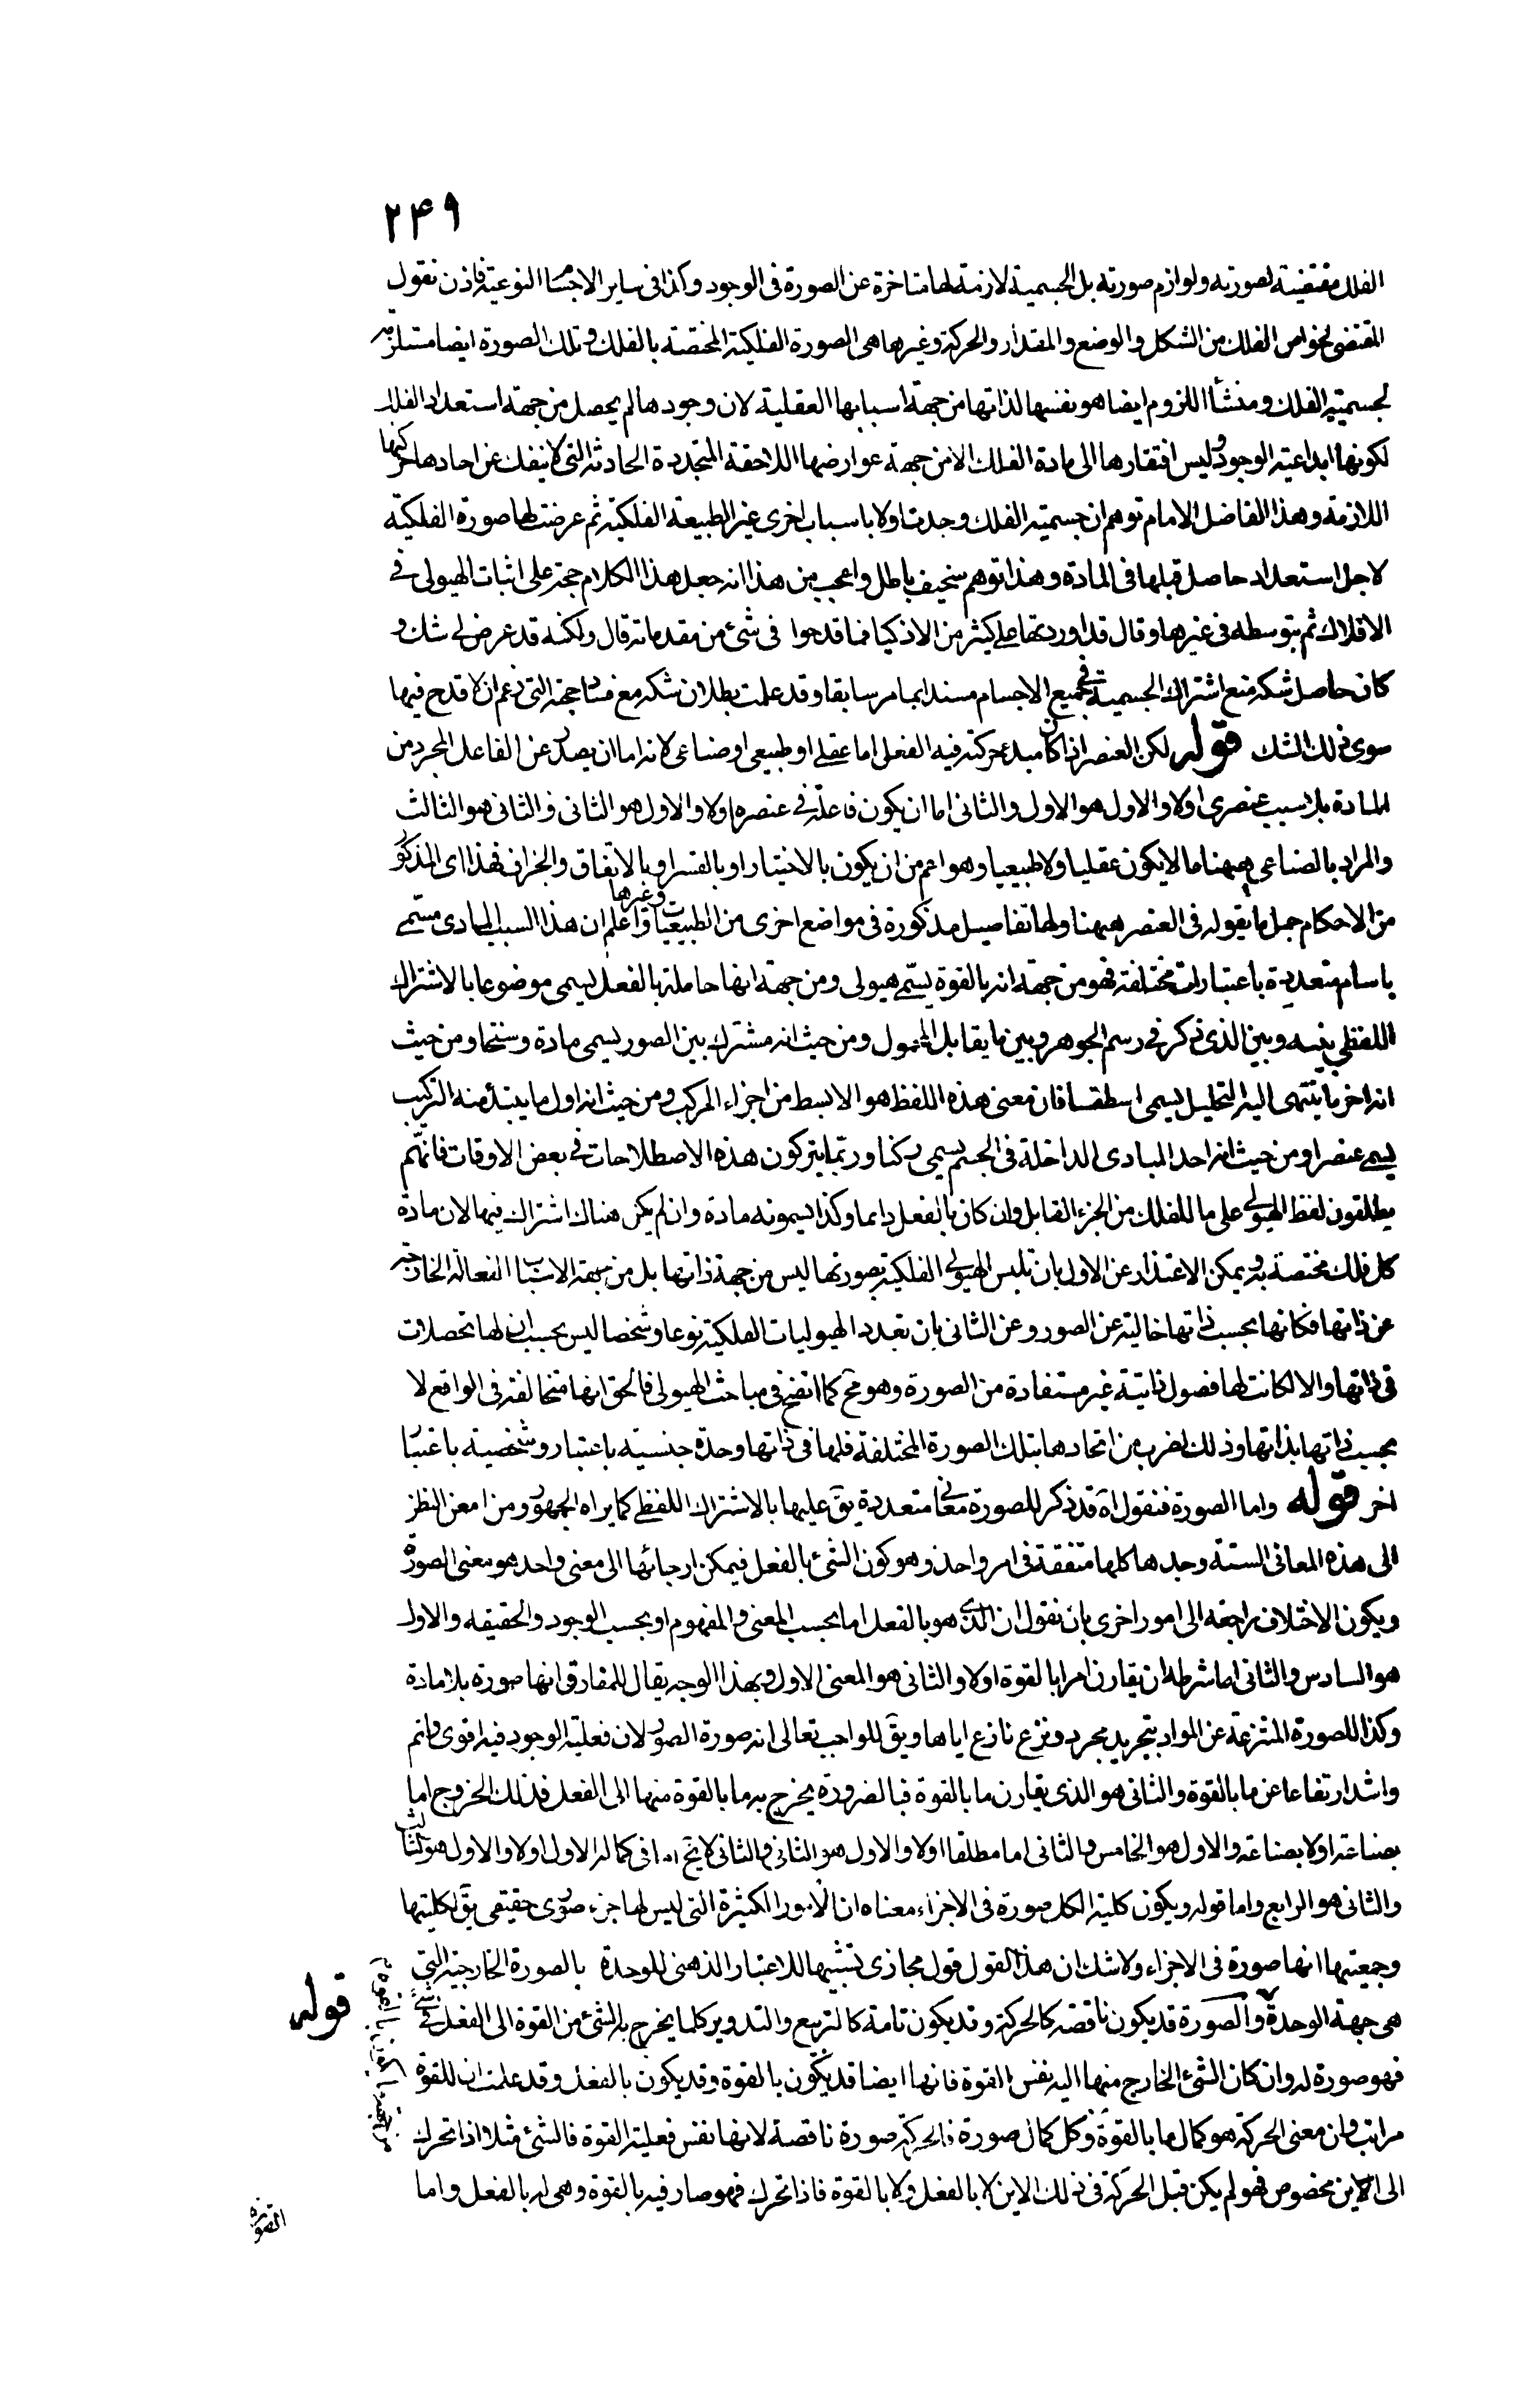 ٢٤٩
الفلك مقتضية لصورته ولوازم صورته بل الجسمية لازمة لها متاخرة عن الصورة فى الوجود وكذا فى ساير الاجسام النوعية فاذن نقول
المقتضى لخواص الفلك من الشكل والوضع والمقدار والحركة وغيرها هى الصورة الفلكية المختصة بالفلك وتلك الصورة ايضا مستلزمة
لجسمية الفلك ومنشأ اللزوم ايضا هو نفسها لذاتها من جهة اسبابها العقلية لان وجودها لم يحصل من جهة استعداد الفلك
لكونها ابداعية الوجود وليس افتقارها الى مادة الفلك الا من جهة عوارضها اللاحقة المتجددة الحادثة التى لا ينفك عن احادها حركتها
اللازمة وهذا الفاضل الامام توهم ان جسمية الفلك وجدت اولا باسباب اخرى غير الطبيعة الفلكية ثم عرضت لها صورة الفلكية
لاجل استعداد حاصل قبلها فى المادة وهذا توهم سخيف باطل واعجب من هذا انه جعل هذا الكلام حجة على اثبات الهيولى فى
الافلاك ثم بتوسطه فى غيرها وقال قد اوردتها على كثير من الاذكيا فما قدحوا فى شئ من مقدماته قال ولكنه قد عرض لى شك و
كان حاصل شكه منع اشتراك الجسمية فى جميع الاجسام مسندا بما مر سابقا وقد علمت بطلان شكه مع فساد حجته التى زعم ان لا قدح فيها
سوى ذلك الشك قوله لكن العنصر اذا كان مبدء حركته فيه الفعلى اما عقلى او طبيعى او صناعى لانه اما ان يصدر عن الفاعل المجرد من
المادة بلا سبب عنصرى اولا والاول هو الاول والثانى اما ان يكون فاعله فى عنصره اولا والاول هو الثانى والثانى هو الثالث
والمراد بالصناعى ههنا ما لا يكون عقليا ولا طبيعيا وهو اعم من ان يكون بالاختيار او بالقسر او بالاتفاق والجزاف فهذا اى المذكور
من الاحكام جمل ما يقوله فى العنصر ههنا ولها تفاصيل مذكورة فى مواضع اخرى من الطبيعيات وغيرها واعلم ان هذا السبب المادى مسمى
باسام متعددة باعتبارات مختلفة فهو من جهة انه بالقوة يسمى هيولى ومن جهة انها حاملة بالفعل يسمى موضوعا بالاشتراك
اللفظى بينه وبين الذى ذكر فى رسم الجوهر وبين ما يقابل المحمول ومن حيث انه مشترك بين الصور يسمى مادة وسنخا ومن حيث
انه اخر ما ينتهى اليه التحليل يسمى اسطقسا فان معنى هذه اللفظ هو الابسط من اجزاء المركب ومن حيث انه اول ما يبتدء منه التركيب
يسمى عنصرا ومن حيث انه احد المبادى الداخلة فى الجسم يسمى ركنا وربما يتركون هذه الاصطلاحات فى بعض الاوقات فانهم
يطلقون لفظ الهيولى على ما للفلك من الجزء القابل وان كان بالفعل دايما وكذا يسمونه مادة وان لم يكن هناك اشتراك فيها لان مادة
كل فلك مختصة به ويمكن الاعتذار عن الاول بان تلبس الهيولى الفلكية بصورتها ليس من جهة ذاتها بل من جهة الاسباب الفعالة الخارجية
عن ذاتها فكانها بحسب ذاتها خالية عن الصور وعن الثانى بان تعدد الهيوليات الفلكية نوعا وشخصا ليس بحسب ان لها تحصلات
فى ذاتها والا لكانت لها فصول ذاتية غير مستفادة من الصورة وهو مح كما اتضح فى مباحث الهيولى فالحق انها متخالفة فى الواقع لا
بحسب ذاتها بذاتها وذلك لضرب من اتحادها بتلك الصورة المختلفة فلها فى ذاتها وحدة جنسية باعتبار وشخصية باعتبار
اخر قوله واما الصورة فنقول اه قد ذكر للصورة معانى متعددة يق عليها بالاشتراك اللفظى كما يراه الجمهور ومن امعن النظر
الى هذه المعانى الستة وجدها كلها متفقة فى امر واحد وهو كون الشئ بالفعل فيمكن ارجائها الى معنى واحد هو معنى الصورة
ويكون الاختلاف راجعة الى امور اخرى بان نقول ان الذى هو بالفعل اما بحسب المعنى والمفهوم او بحسب الوجود والحقيقه والاول
هو السادس والثانى اما شرطه ان يقارن امرا بالقوة اولا والثانى هو المعنى الاول وبهذا الوجه يقال للمفارق انها صورة بلا مادة
وكذا للصورة المنتزعة عن المواد بتجريد مجرد ونزع نازع اياها ويق للواجب تعالى انه صورة الصور لان فعلية الوجود فيه اقوى واتم
واشد ارتفاعا عن ما بالقوة والثانى هو الذى يقارن ما بالقوة فبالضرورة يخرج به ما بالقوة منها الى الفعل فذلك الخروج اما
بصناعة اولا بصناعة والاول هو الخامس والثانى اما مطلقا اولا والاول هو الثانى والثانى لا يخ اما فى كماله الاول اولا والاول هو الثالث
والثانى هو الرابع واما قوله ويكون كلية الكل صورة فى الاجزاء معناه ان الامور الكثيرة التى ليس لها جزء صورى حقيقى يق لكليتها
وجمعيتها انها صورة فى الاجزاء ولا شك ان هذا القول قول مجازى تشبيها للاعتبار الذهنى للوحدة بالصورة الخارجية التى
هى جهة الوحدة والصورة قد يكون ناقصة كالحركة وقد يكون تامة كالتربيع والتدوير كلما يخرج به الشئ من القوة الى الفعل فى شئ
قوله
فهو صورة له وان كان الشئ الخارج منها اليه نفس القوة فانها ايضا قد يكون بالقوة وقد يكون بالفعل وقد علمت ان للقوة
مراتب وان معنى الحركة هو كمال ما بالقوة وكل كمال صورة فالحركة صورة ناقصة لانها نفس فعلية القوة فالشئ مثلا اذا تحرك
الى الاين مخصوص فهو لم يكن قبل الحركة فى ذلك الاين لا بالفعل ولا بالقوة فاذا تحرك فهو صار فيه بالقوة وهى له بالفعل واما
الصورة